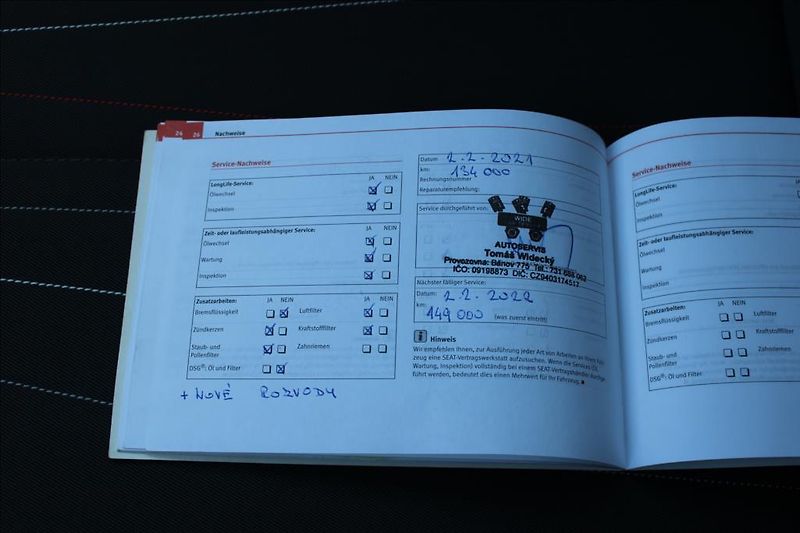 24 26 Nachweise
Service-Nachweise
JA NEIN
LongLife-Service:
Ölwechsel
Inspektion
JA NEIN
Zeit- oder laufleistungsabhängiger Service:
Ölwechsel
Wartung
Inspektion
Zusatzarbeiten: JA NEIN JA NEIN
Bremsflüssigkeit Luftfilter
Zündkerzen Kraftstofffilter
Staub- und Pollenfilter Zahnriemen
DSG®: Öl und Filter
+ NOVÉ ROZVODY
Datum 2.2.2021
km: 134 000
Rechnungsnummer
Reparaturempfehlung:
Service durchgeführt von:
WIDE
AUTOSERVIS
Tomáš Widecký
Provozovna: Bánov 775 Tel.: 731
IČO: 09198873 DIČ: CZ9403174517
Nächster fälliger Service:
Datum: 2.2.2022
km: 149 000 (was zuerst eintritt)
Hinweis
Wir empfehlen Ihnen, zur Ausführung jeder Art von Arbeiten an Ihrem Fahr-
zeug eine SEAT-Vertragswerkstatt aufzusuchen. Wenn die Services (Öl,
Wartung, Inspektion) vollständig bei einem SEAT-Vertragshändler durchge-
führt werden, bedeutet dies einen Mehrwert für Ihr Fahrzeug.
Service-Nachweise
LongLife-Service:
Ölwechsel
Inspektion
Zeit- oder laufleistungsabhängiger Service:
Ölwechsel
Wartung
Inspektion
Zusatzarbeiten: JA NEIN
Bremsflüssigkeit Luftfilter
Zündkerzen Kraftstofffilter
Staub- und Pollenfilter Zahnriemen
DSG®: Öl und Filter